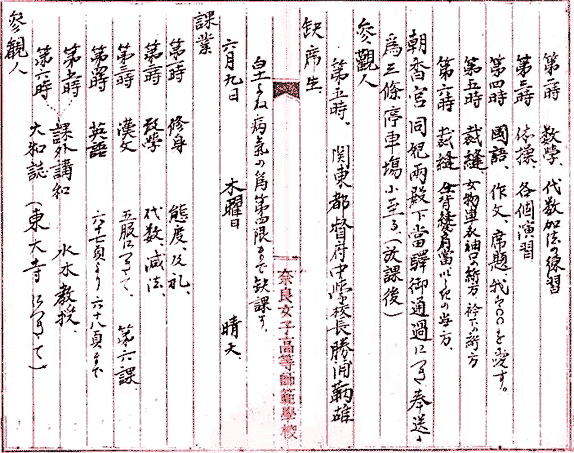 第二時 数學、代数加法の練習
第三時 体操、各個演習
第四時 國語、作文、席題 我が〇〇を愛す。
第五時 裁縫 女物単衣袖口の絎方 衿下の絎方
第六時 裁縫
朝香宮同妃両殿下當驛御通過につき奉送の
為三條停車場に至る、(放課後)
参觀人
第五時、関東都督府中学校長 勝浦鞆雄
缺席生
病氣の為第四限まで缺課す。
六月九日 木曜日 晴天
課業
第一時 修身 態度、及礼、
第二時 数學 代数、減法、
第三時 漢文 五服につきて、第六課
第四時 英語 六十七頁より六十八頁まで
第五時 課外講和 水木教授
第六時 大和誌 (東大寺につきて)
参觀人
奈良女子高等師範學校